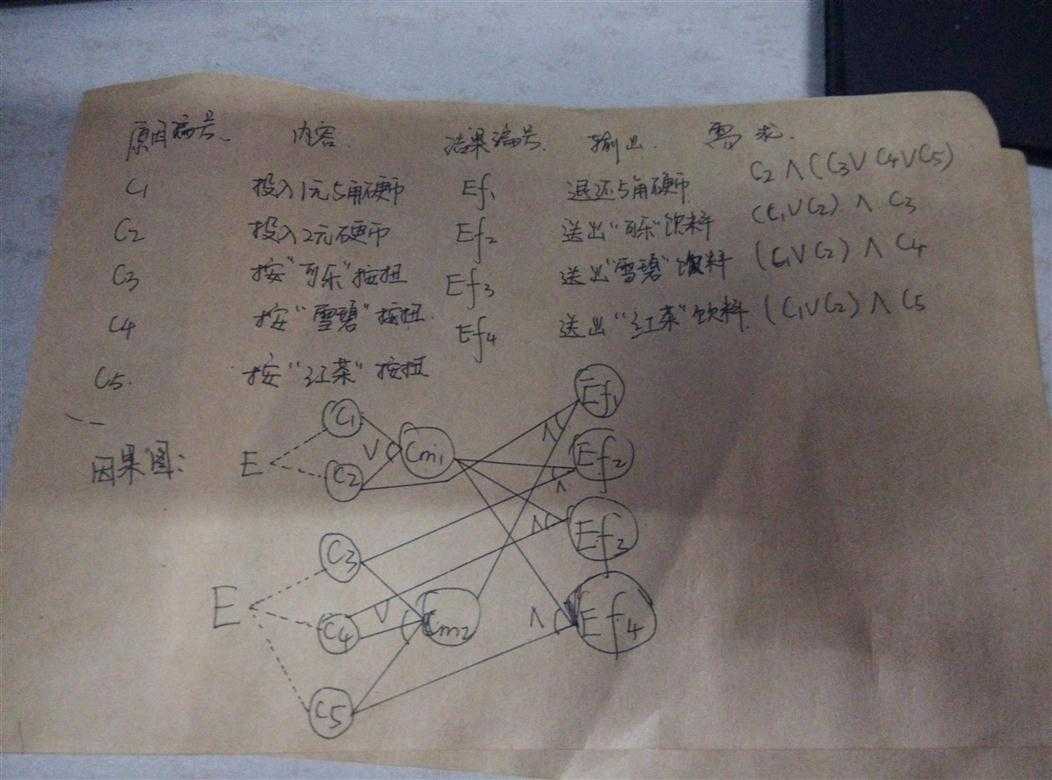 原因编号 内容 结果编号 输出 需求
C1 投入1元5角硬币 Ef1 退还5角硬币 C2∧(C3∨C4∨C5)
C2 投入2元硬币 Ef2 送出"可乐"饮料 (C1∨C2)∧C3
C3 按"可乐"按扭 Ef3 送出"雪碧"饮料 (C1∨C2)∧C4
C4 按"雪碧"按扭 Ef4 送出"红茶"饮料 (C1∨C2)∧C5
C5 按"红茶"按扭
因果图:
E C1 C2 ∨ Cm1 ∧ Ef1
∧ Ef2
E C3 C4 C5 ∨ Cm2 ∧ Ef2
∧ Ef4